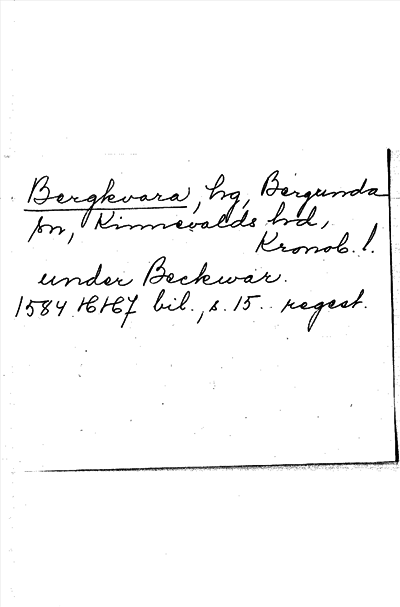 Bergkvara, hg, Bergunda
sn, Kinnevalds hd,
Kronob. l.
under Beckwar.
1584 HH7 bil., s. 15. regest.